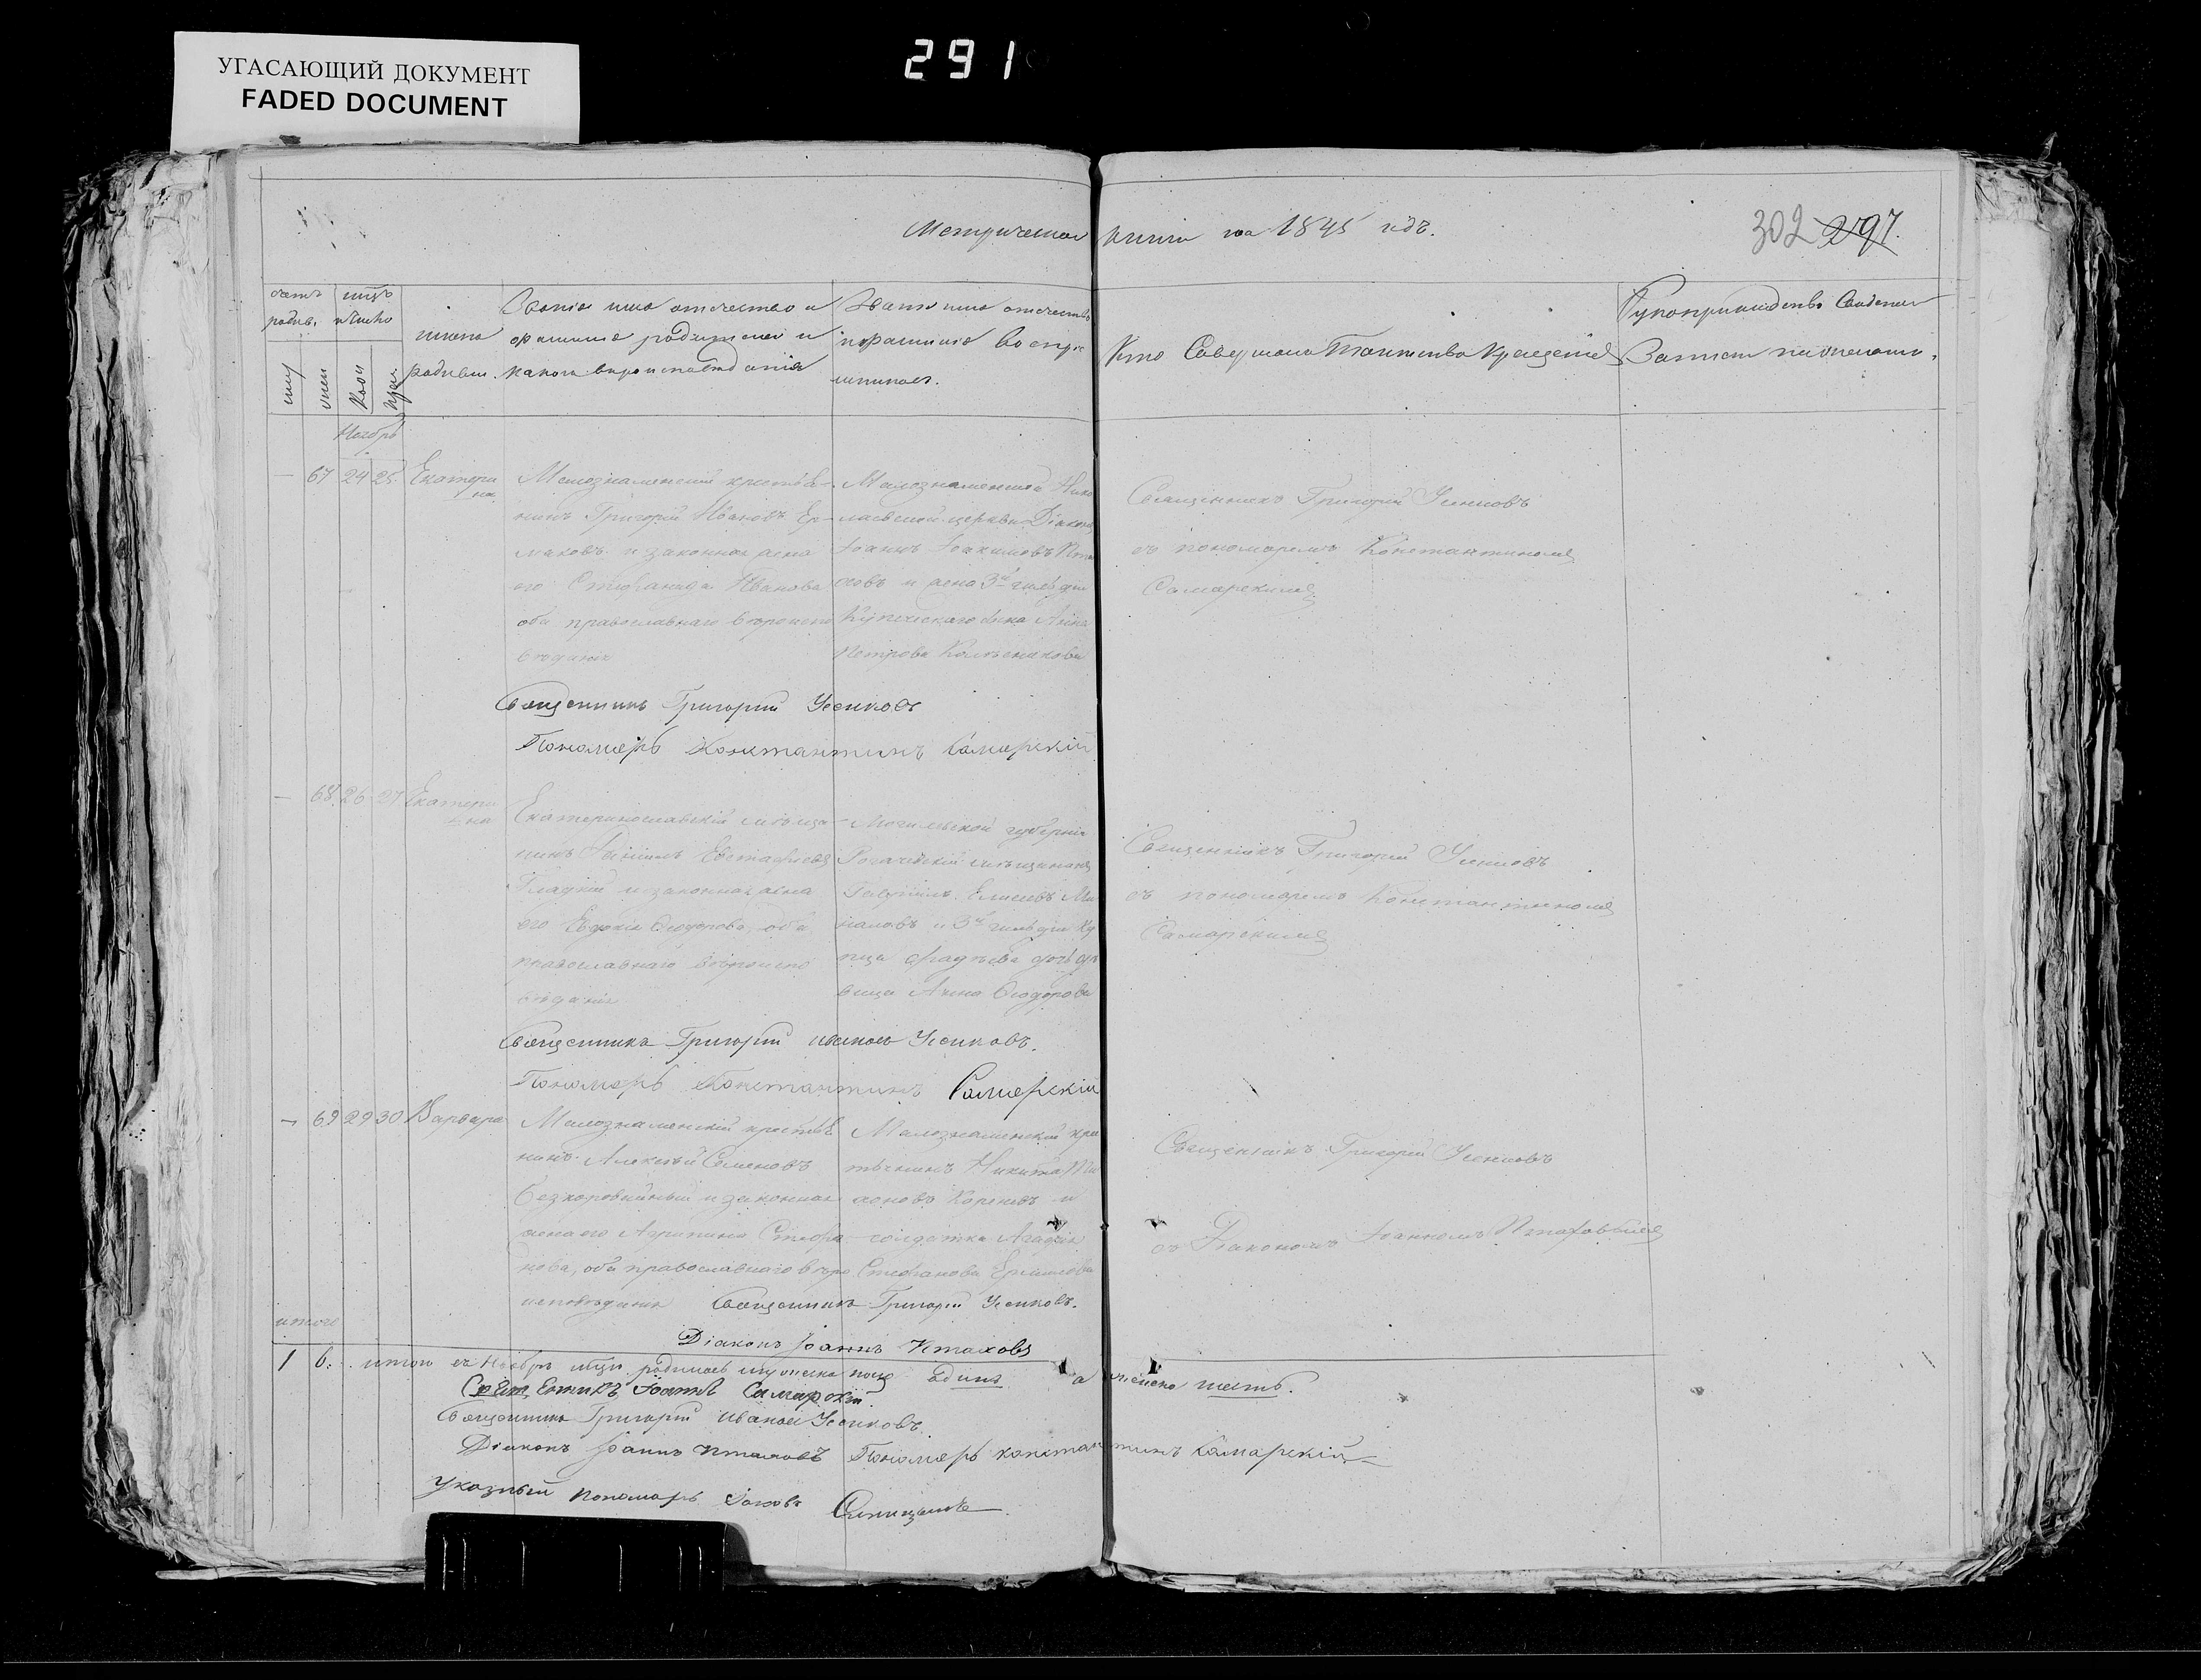 УГАСАЮЩИЙ ДОКУМЕНТ
FADED DOCUMENT
291
Метрическая книги на 1845 годъ.
302 297.
счетъ родив.
мцъ и число
имена родивш.
Званіе имя отечество и
фамилія родителей и
какого вероисповеданія
Званіе имя отечество
и фамилія воспріе
мниковъ.
Кто Совершалъ Таинство Крещенія
Рукоприкладство Свидетел
Записи по желанію.
муж
жен
Рож
Крещ
Ноябрь
— 67 24 25. Екатери
на
Малознаменскій крестья-
нинъ Григорій Ивановъ Ер-
маковъ и законная жена
его Стефанида Иванова
оба православнаго вѣроиспо
вѣданія
Малознаменской Нико
лаевской церкви Діаконъ
Іоаннъ Іоакимовъ Пта
ховъ и жена 3й гильдіи
Купеческаго сына Анна
Петрова Колесникова
Священникъ Григорій Усиковъ
съ пономаремъ Константиномъ
Самарскимъ
Священникъ Григорій Усиковъ
Пономарь Константинъ Самарскій
— 68 26 27 Екатери
на
Екатеринославскій мѣща-
нинъ Евстафіевъ
Гладкій и законная жена
его Евдокія Ѳеодорова, оба
православнаго вѣроиспо
вѣданія
Могилевской губерніи
Рогачевскій мѣщанинъ
Гавріилъ Елисеевъ
и 3й гильдіи Ку
пца Фадѣева дочь дѣ
вица Анна Ѳеодорова
Священникъ Григорій Усиковъ
съ пономаремъ Константиномъ
Самарскимъ
Священникъ Григорій Ивановъ Усиковъ.
Пономарь Константинъ Самарскій
— 69 29 30 Варвара
Малознаменскій крестья
нинъ Алексѣй Семеновъ
Безкоровайный и законная
жена его Агрипина Стефа
нова, оба православнаго вѣро
исповѣданія
Малознаменскій кре
стьянинъ Никита
Кореневъ и
солдатка Агафія
Стефанова Ермакова
Священникъ Григорій Усиковъ
съ Діакономъ Іоанномъ Птаховымъ
Священникъ Григорій Усиковъ.
Діаконъ Іоаннъ Птаховъ
итого
1 6. итого въ Ноябрѣ мцѣ родилось мужеска пола одинъ а женска шесть.
Священникъ Іоаннъ Самарскій.
Священникъ Григорій Ивановъ Усиковъ.
Діаконъ Іоаннъ Птаховъ Пономарь Константинъ Самарскій
Указный пономарь Іаковъ